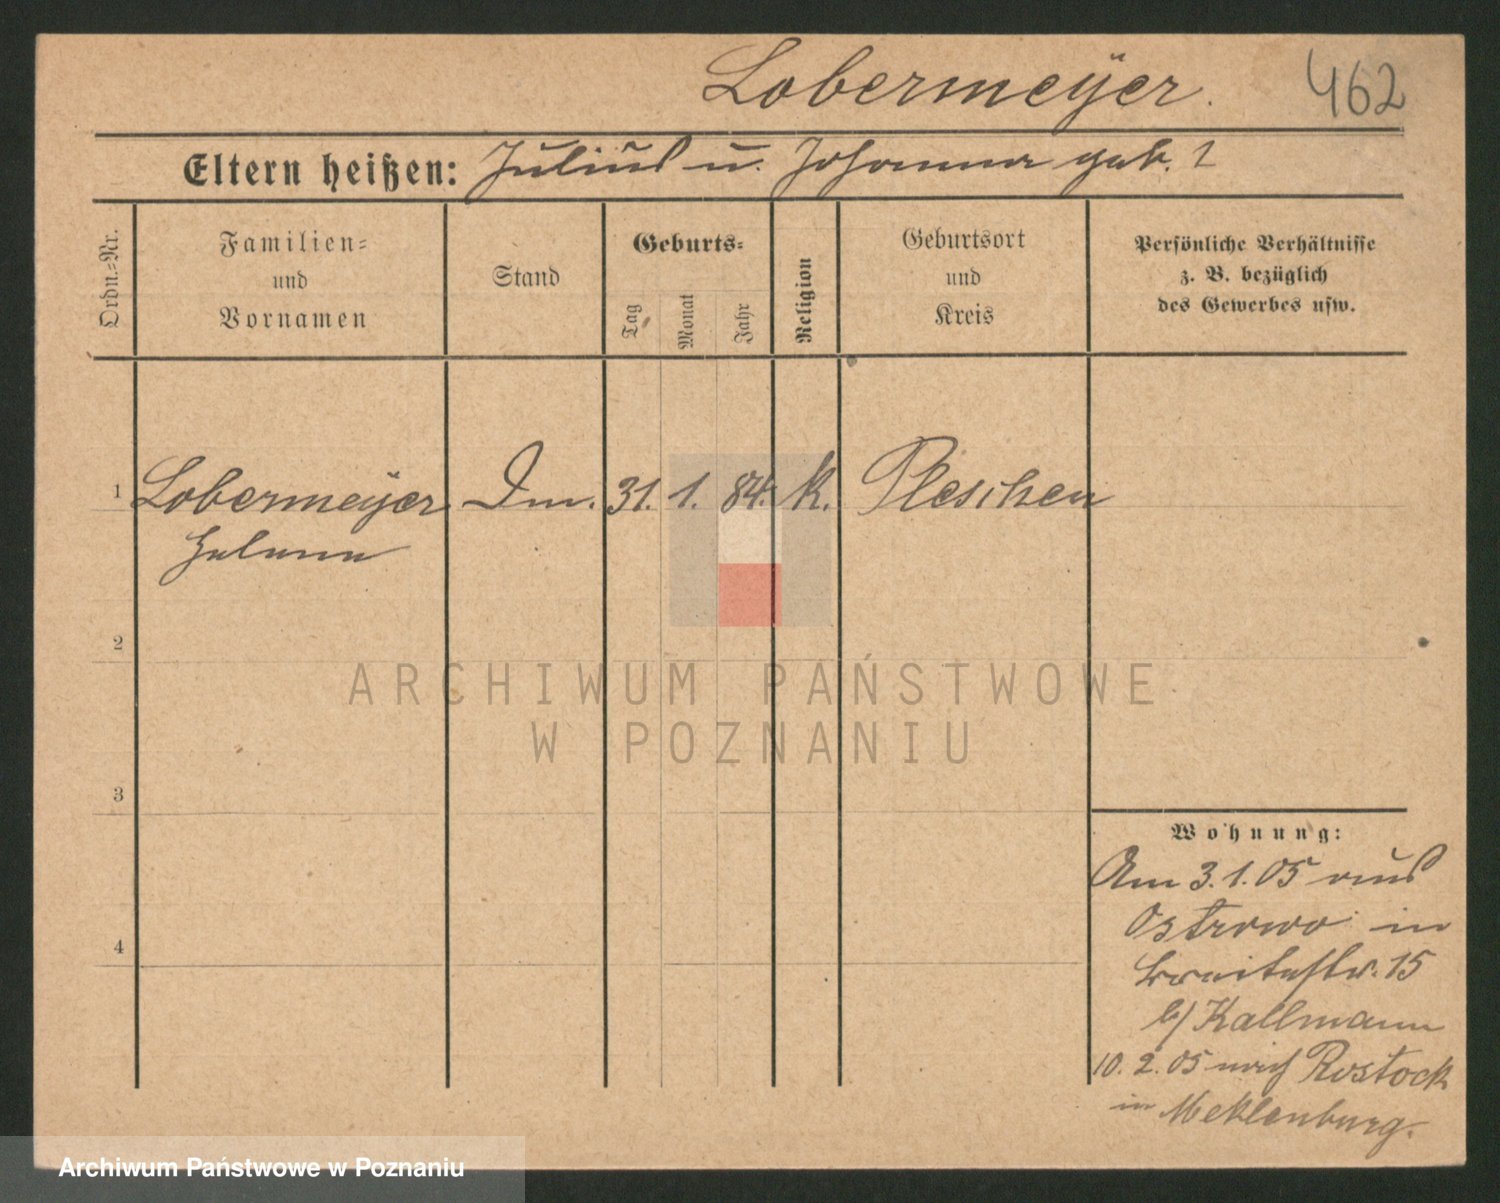 Lobermeÿer.
462
Eltern heißen: Julius u. Johanna geb. ?
Ordn.=Nr.
Familien=
und
Vornamen
Stand
Geburts=
Tag
Monat
Jahr
Religion
Geburtsort
und
Kreis
Persönliche Verhältnisse
z. B. bezüglich
des Gewerbes usw.
1 Lobermeÿer 31. 1. 84. K. Pleschen
Helene
2
3
4
Wohnung:
Am 3.1.05 aus
Ostrowo in
Breitestr. 15
b/ Kallmann
10. 2. 05 nach Rostock
in Meklenburg.
ARCHIWUM PAŃSTWOWE
W POZNANIU
Archiwum Państwowe w Poznaniu